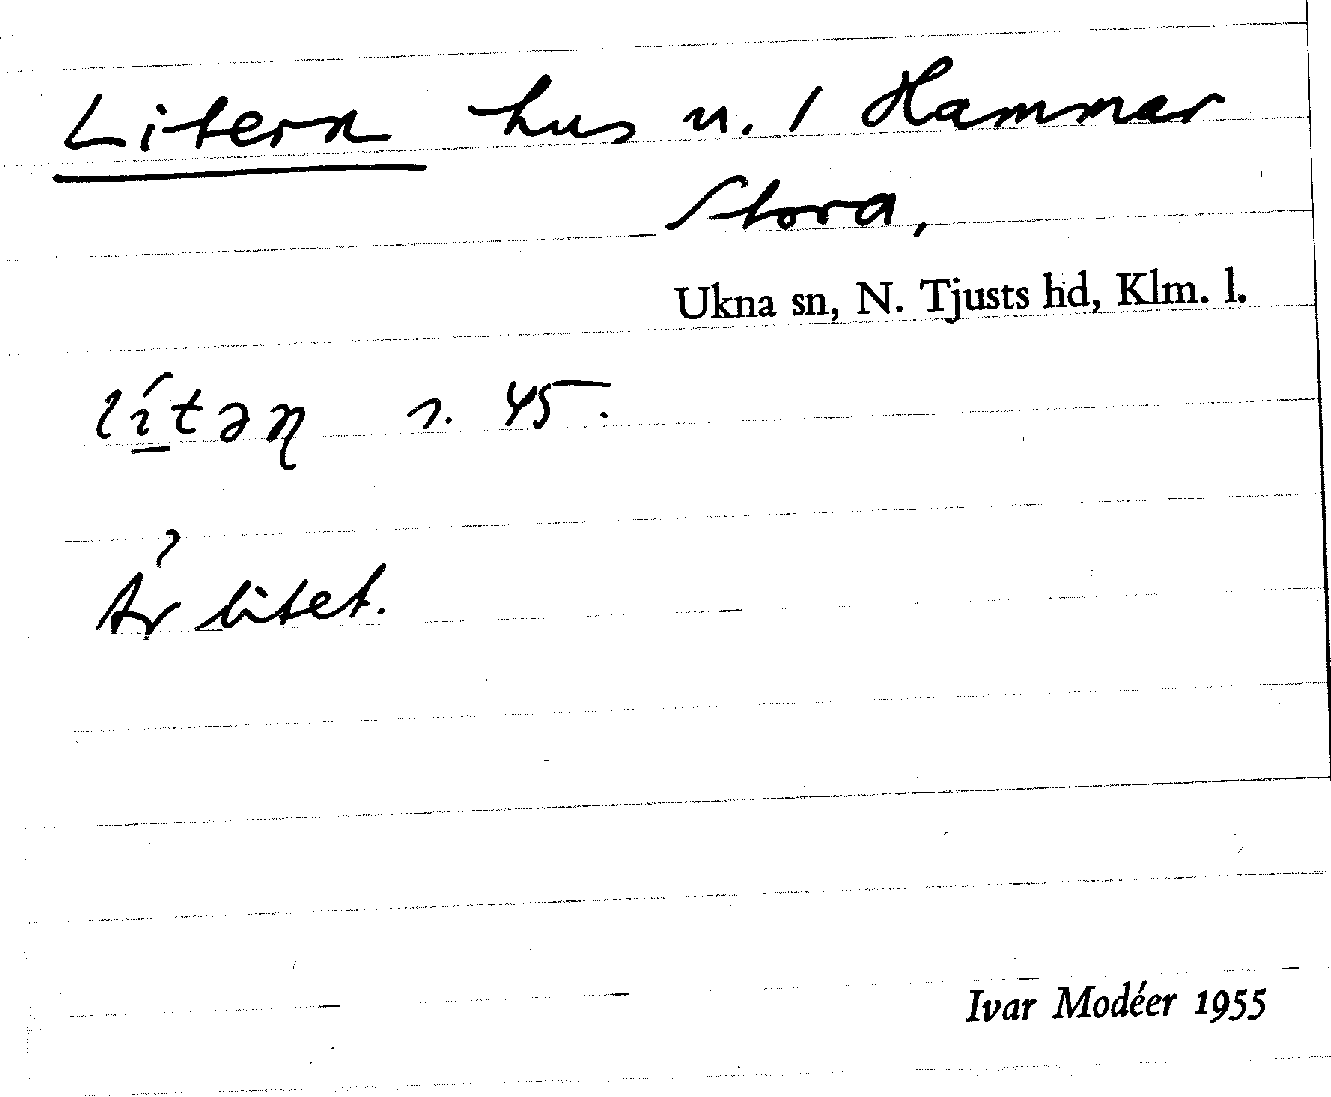 Litern hus u. / Hammar
Stora,
Ukna sn, N. Tjusts hd, Klm. l.
lítəɳ s. 45.
Är litet.
Ivar Modéer 1955